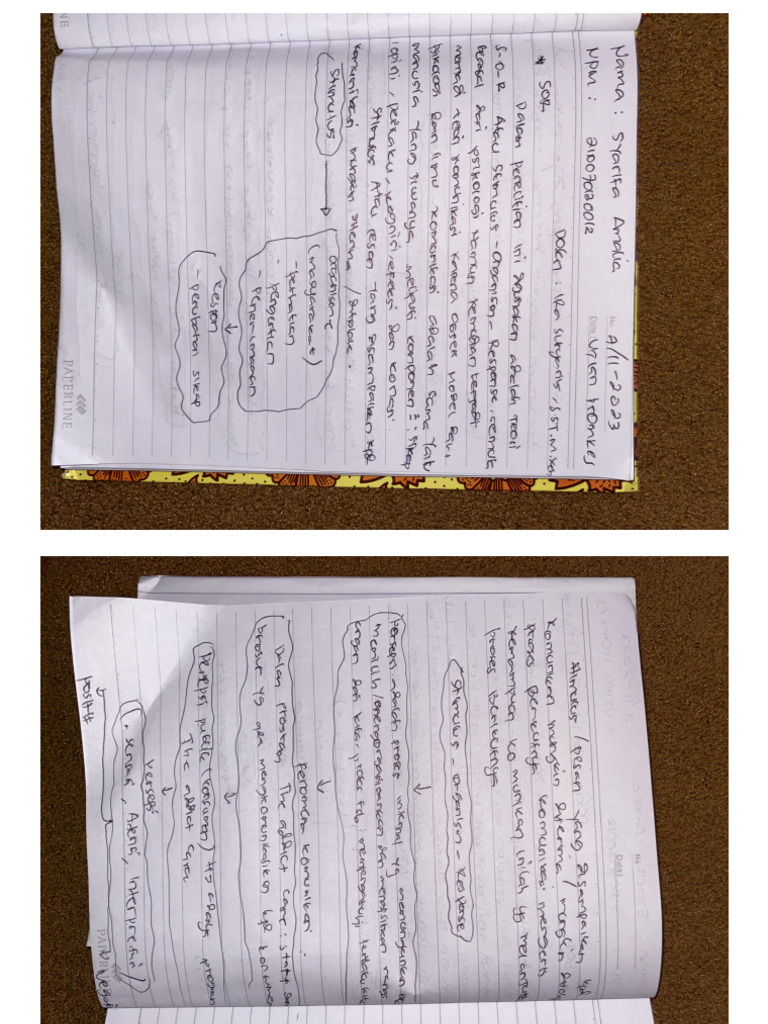 Nama : Syarifa Amalia
No: A/11-2023
NPM : 21007020012
Date: Urian Promkes
Dosen : Ira Suryanis, S.ST.M.Kes
* SOR
Dalam penelitian ini digunakan adalah Teori
S-O-R Atau Stimulus - Organism - Response, semula
berasal dari psikologi Namun kemudian terjadi
menjadi teori komunikasi karena objek
psikologi dan ilmu komunikasi adalah sama yaitu
manusia yang jiwanya meliputi komponen² : sikap
opini, perilaku, kognisi, afeksi dan konasi
Stimulus Atau pesan yang disampaikan kpd
komunikasi mungkin diterima / ditolak.
Stimulus
organisme
(masyarakat)
- perhatian
- pengertian
- penerimaan
Respon
- perubahan sikap
PAPERLINE
Stimulus / pesan yang disampaikan kpd
komunikan mungkin diterima / mungkin ditolak
proses berikutnya komunikasi mengerti
kemampuan komunikan inilah yg melanjutk
proses berikutnya
Stimulus - organism - Response
persepsi adalah proses internal yg memungkinkan kt
memilih / mengorganisasikan dan menafsirkan rangs
angan dari luar, proses tsb mempengaruhi perilaku kita
peromosa komunikasi :
Dalam program The addict care : staff dn
brosur yg dpa mengkomunikasikan kpd konsumen
persepsi publik (konsumen) thd adanya program
The addict care
persepsi
(sensasi, Atensi, Interpretasi)
positif
PAPERLINE
Negati